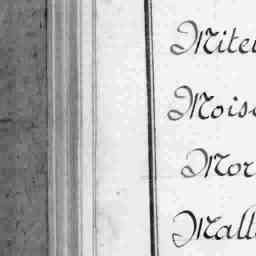 Mite
Mois
Mor
Mall